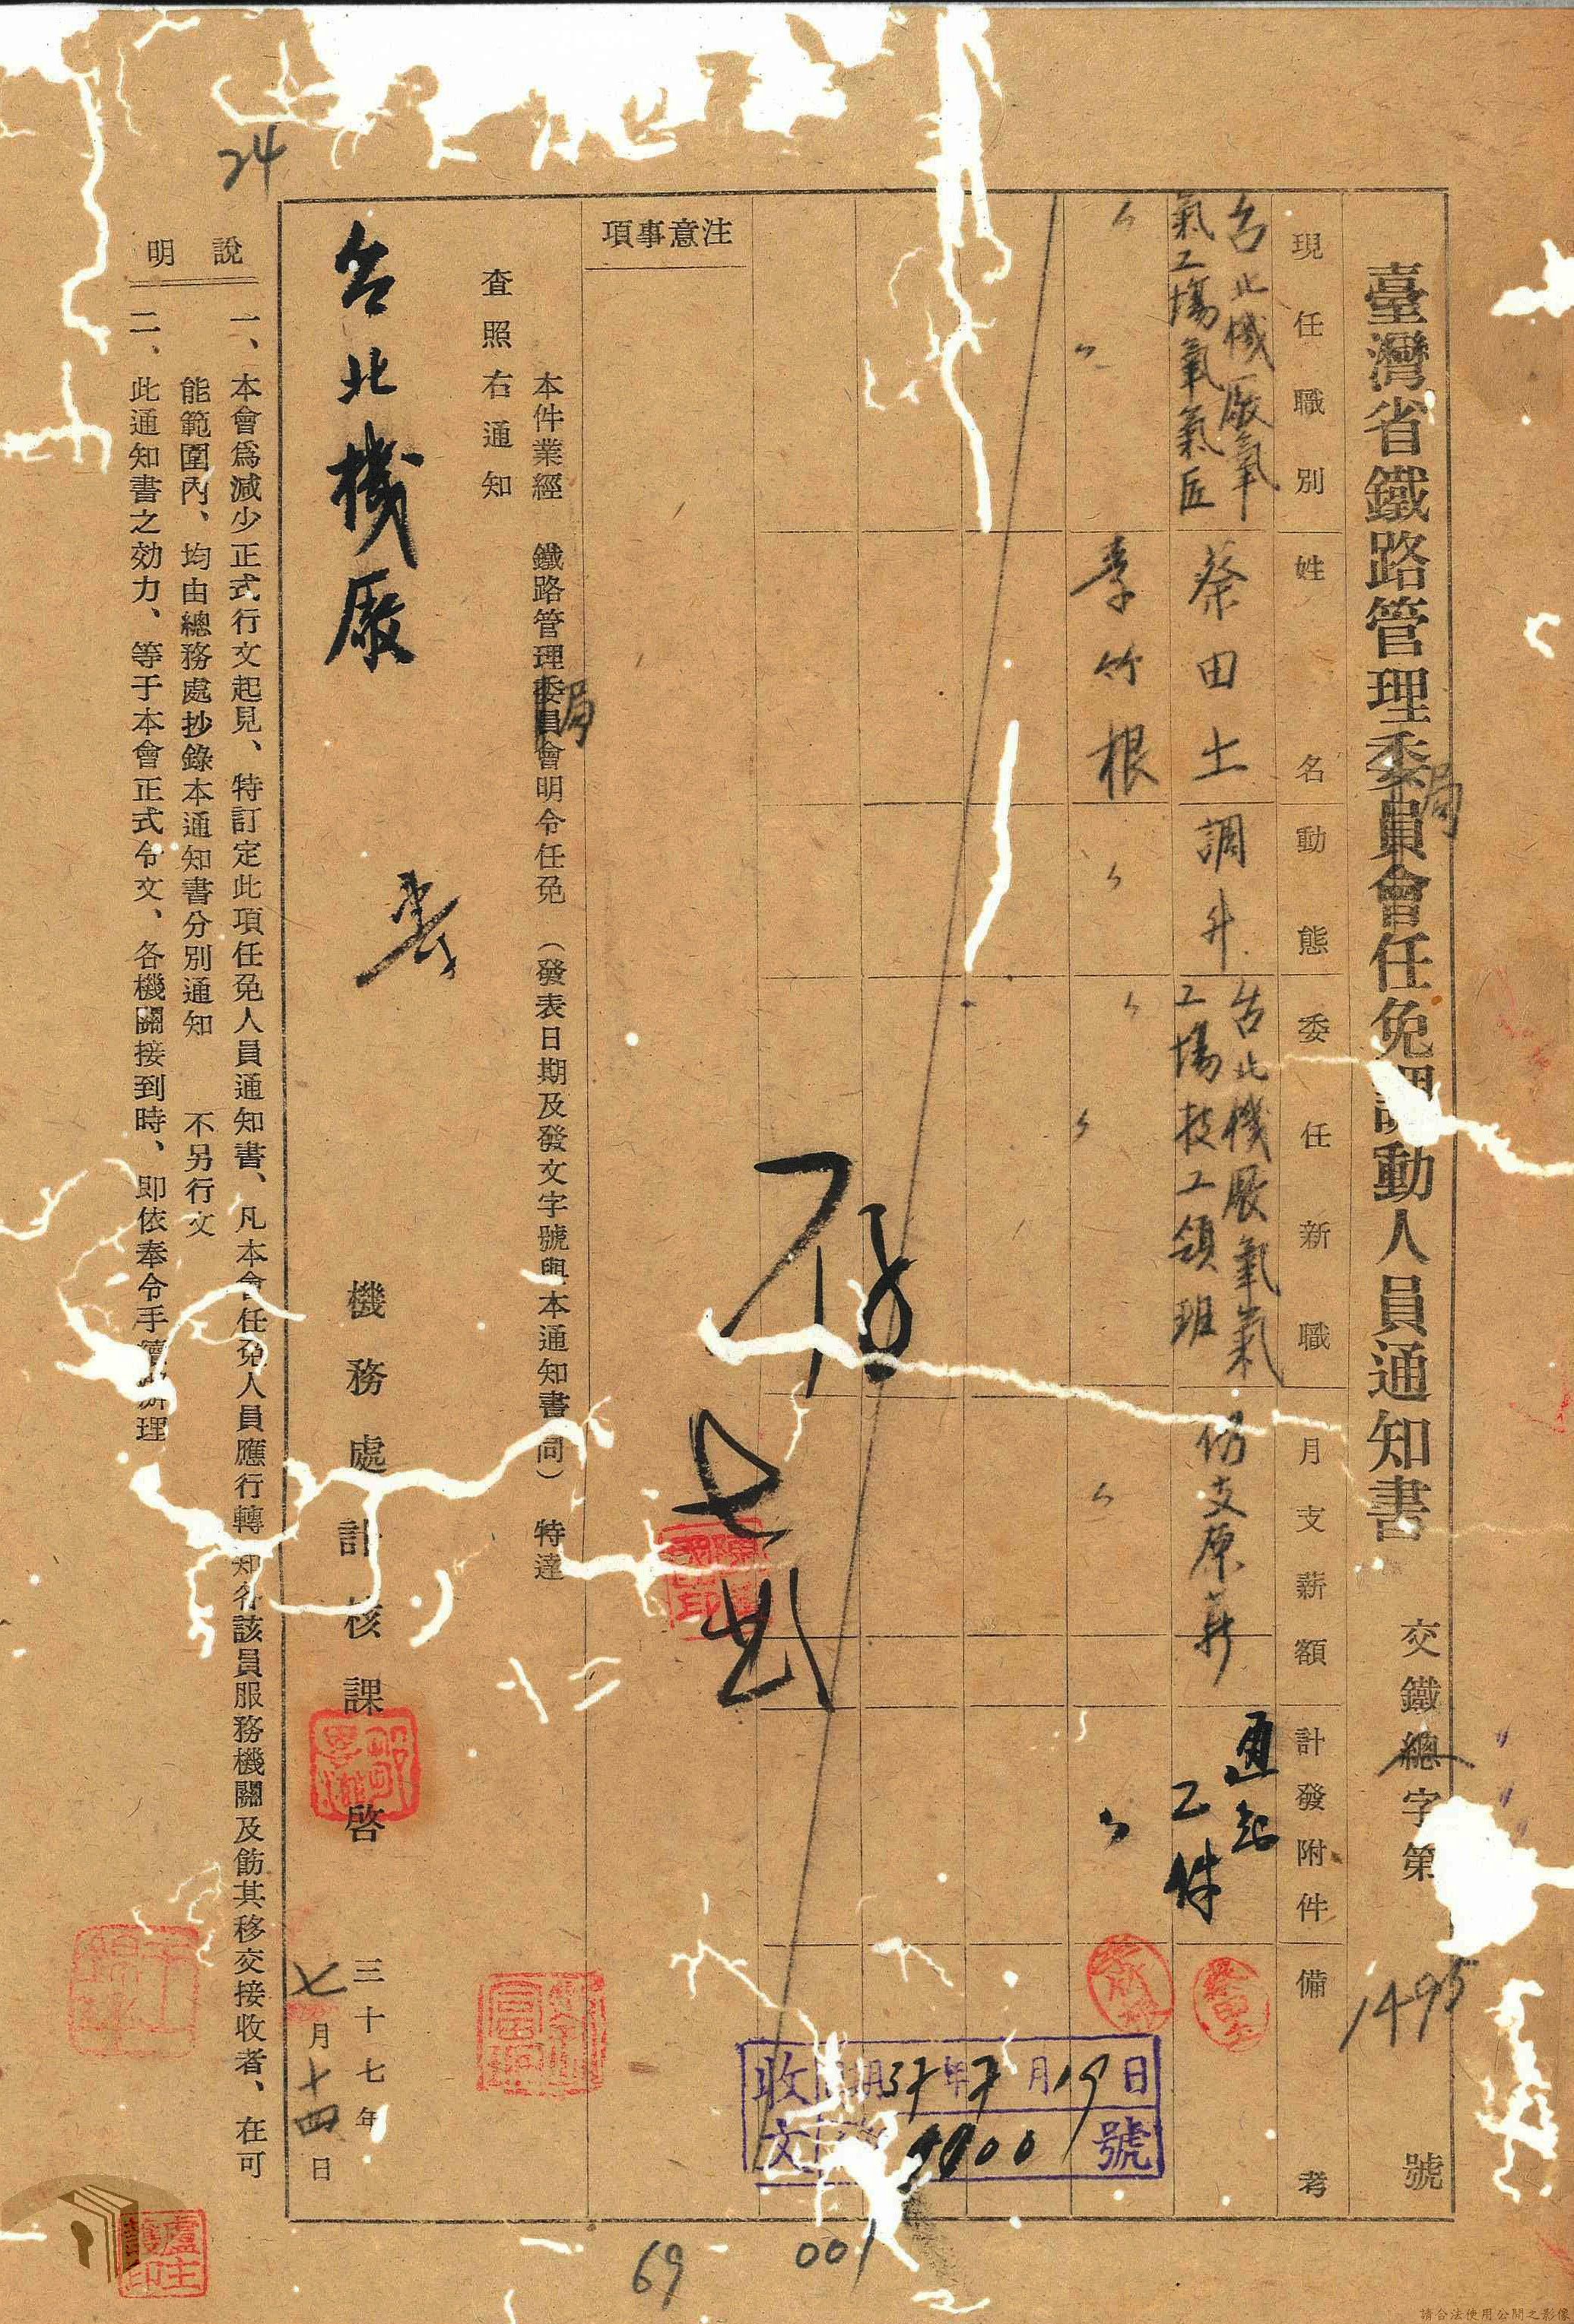 臺灣省鐵路管理委員會任免調動人員通知書
局
交鐵總字第1495號
現任職別
姓名
動態
委任新職
月支薪額
計發附件
備考
台北機廠氧
氣工場氧氣匠
蔡田土
調升
台北機廠氧氣
工場技工領班
仍支原薪
通知
乙件
〃
〃
李竹根
〃
〃
〃
〃
〃
注意事項
存
七
本件業經 鐵路管理委員會明令任免 (發表日期及發文字號與本通知書同) 特達
局
查照右通知
台北機廠
機務處計核課啓
三十七年
七月十四日
說明
一、本會爲減少正式行文起見、特訂定此項任免人員通知書、凡本會任免人員應行轉知各該員服務機關及飭其移交接收者、在可
能範圍內、均由總務處抄錄本通知書分別通知 不另行文
二、此通知書之効力、等于本會正式令文、各機關接到時、即依奉令手續辦理
收文
期37年7月19日
號
24
69
001
請合法使用公開之影像